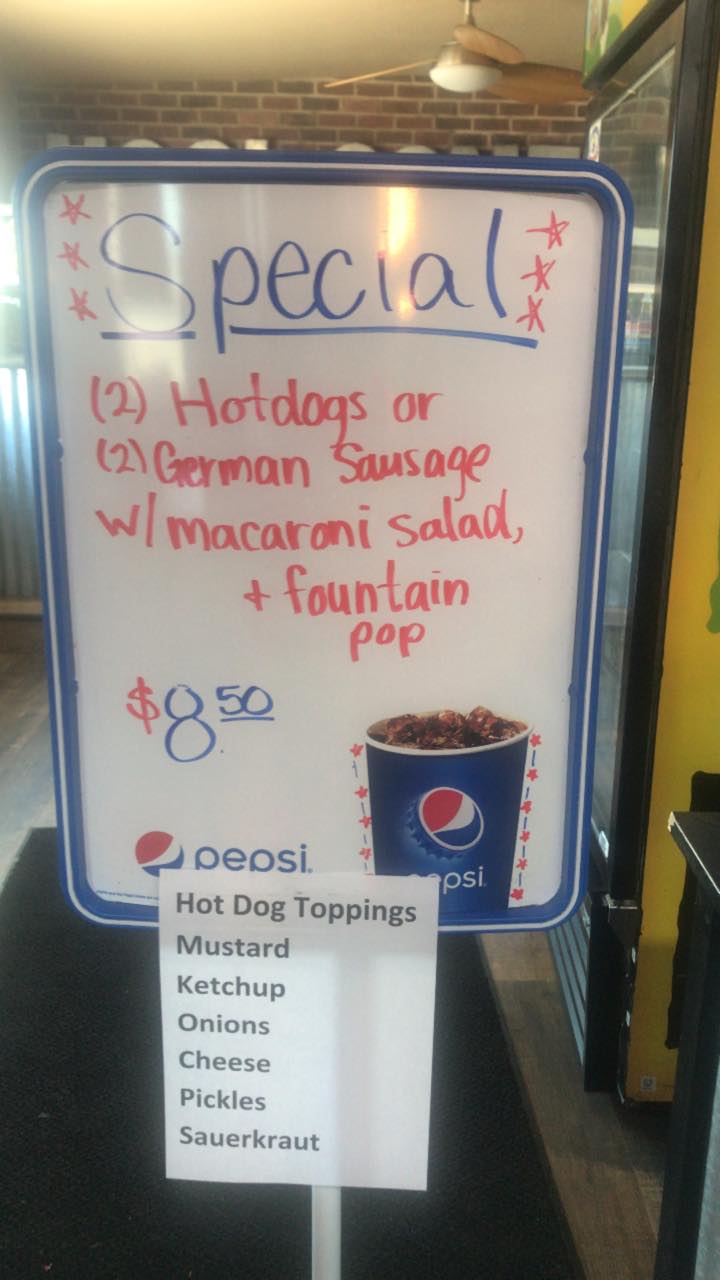 Special
(2) Hotdogs or
(2) German Sausage
w/ macaroni salad,
+ fountain
pop
$8.50
pepsi
epsi
Hot Dog Toppings
Mustard
Ketchup
Onions
Cheese
Pickles
Sauerkraut